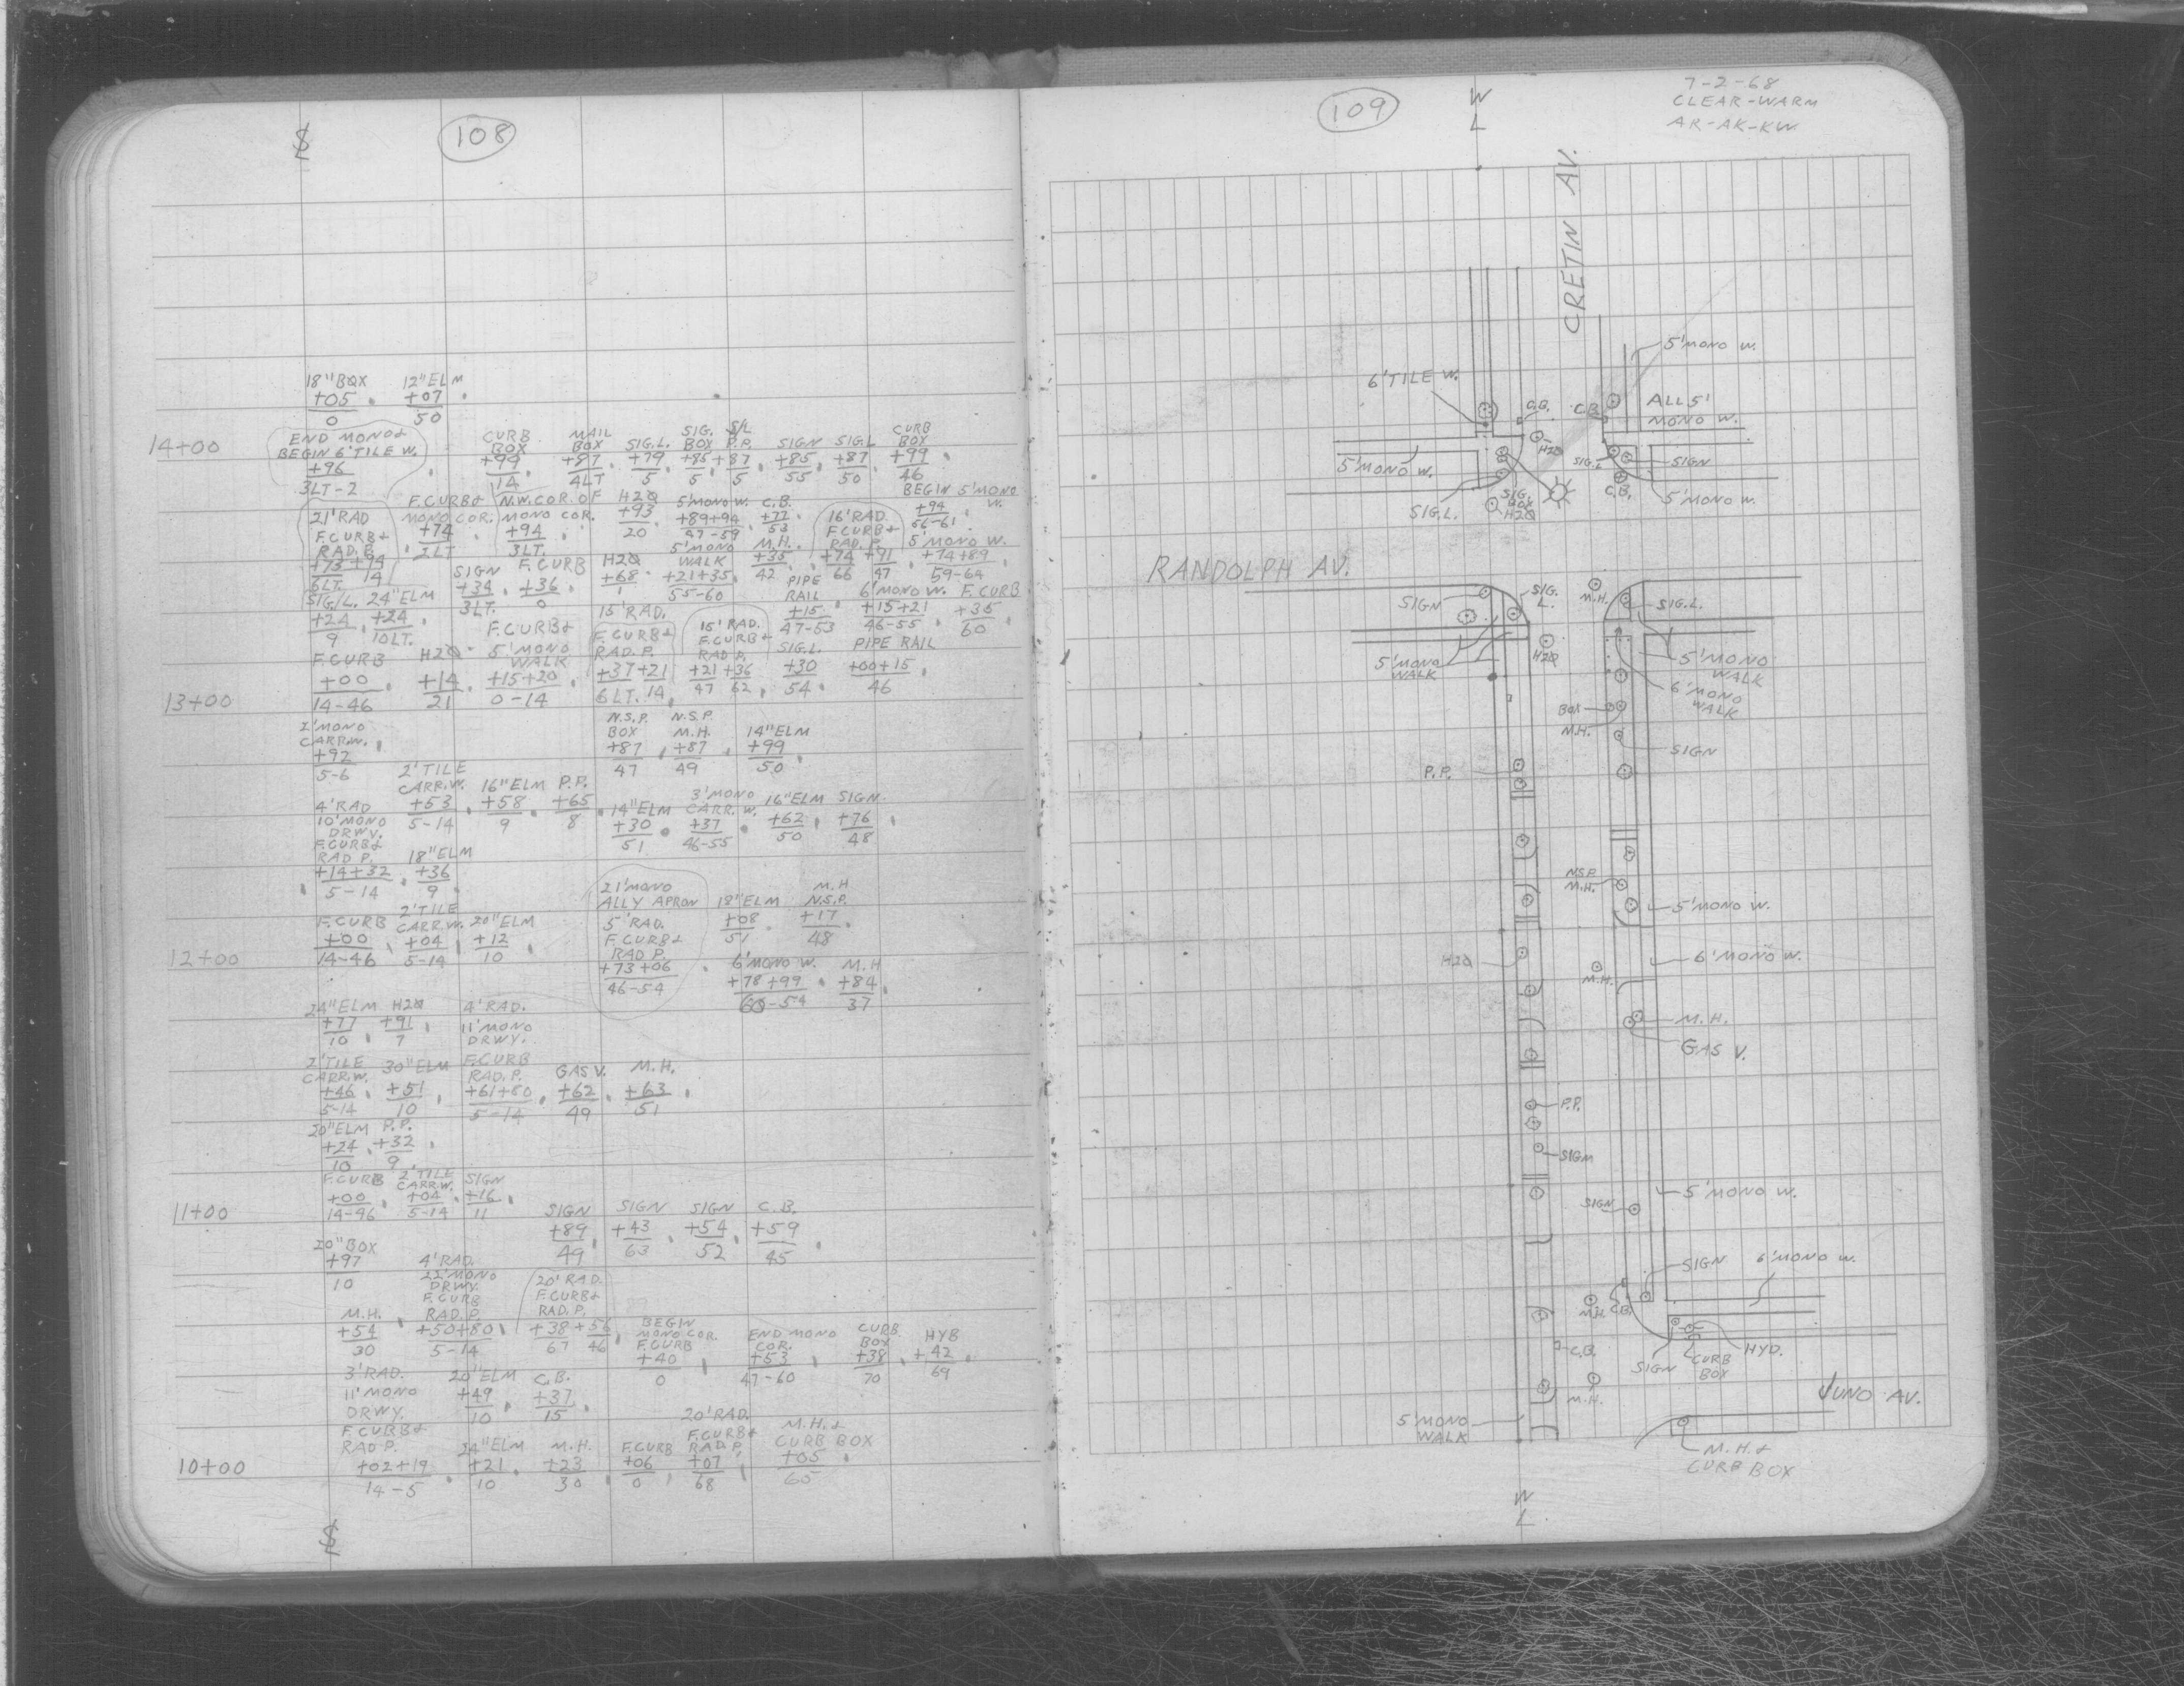 108
18"BOX 12"ELM
+05 +07
0 50
14+00
END MONO &
BEGIN 6'TILE W.
+96
3LT-2
CURB BOX
+99
14
MAIL BOX
+87
4LT
SIG.L.
+79
5
SIG. BOX
+85
5
S/L P.P.
+87
5
SIGN
+85
55
SIG.L
+87
50
CURB BOX
+99
46
21'RAD
F.CURB &
RAD.P.
6LT. 14
F.CURB &
MONO COR.
+74
2LT
N.W. COR. OF
MONO COR.
+94
3LT.
H2O
+93
20
5'MONO W.
+89+94
47-59
C.B.
+77
53
16'RAD.
F.CURB &
RAD. P.
+74 +91
66 47
BEGIN 5'MONO W.
+94
56-61
5'MONO W.
+74+89
59-64
SIGN
+34
3LT.
F. CURB
+36
0
H2O
+68
1
5'MONO
WALK
+21+35
55-60
M.H.
+35
42
SIG/L. 24"ELM
+24 +24
9 10LT.
PIPE
RAIL
+15
47-53
6'MONO W.
+15+21
46-55
F. CURB
+35
60
13+00
F.CURB
+00
14-46
H2O
+14
21
F.CURB &
5'MONO
WALK
+15+20
0-14
15'RAD.
F.CURB &
RAD. P.
+37+21
6LT. 14
15'RAD.
F.CURB &
RAD P.
+21 +36
47 62
SIG.L.
+30
54
PIPE RAIL
+00+15
46
2'MONO
CARR.W.
+92
5-6
N.S.P.
BOX
+87
47
N.S.P.
M.H.
+87
49
14"ELM
+99
50
2'TILE
CARR.W.
+53
5-14
16"ELM P.P.
+58 +65
9 8
14"ELM
+30
51
3'MONO
CARR. W.
+37
46-55
16"ELM
+62
50
SIGN
+76
48
4'RAD
10'MONO
DRWY.
F.CURB &
RAD P.
+14+32
5-14
18"ELM
+36
9
12+00
F. CURB
+00
14-46
2'TILE
CARR.W.
+04
5-14
20"ELM
+12
10
21'MONO
ALLY APRON
5'RAD.
F.CURB &
RAD P.
+73+06
46-54
18"ELM
+08
51
M.H
N.S.P.
+17
48
6'MONO W.
+78+99
60-54
M.H
+84
37
24"ELM H2O
+77 +91
10 7
4'RAD.
11'MONO
DRWY.
F.CURB
RAD. P.
+61+80
5-14
2'TILE
CARR.W.
+46
5-14
30"ELM
+51
10
GAS V.
+62
49
M.H.
+63
51
20"ELM P.P.
+24 +32
10 9
11+00
F.CURB
+00
14-46
2'TILE
CARR.W.
+04
5-14
SIGN
+16
11
SIGN
+89
49
SIGN
+43
63
SIGN
+54
52
C.B.
+59
45
20"BOX
+97
10
M.H.
+54
30
4'RAD.
22'MONO
DRWY.
F.CURB
RAD. P.
+50+80
5-14
20'RAD.
F.CURB &
RAD. P.
+38+56
67 46
BEGIN
MONO COR.
F.CURB
+40
0
END MONO
COR.
+53
47-60
CURB
BOX
+38
70
HYD
+42
69
10+00
3'RAD.
11'MONO
DRWY.
F.CURB &
RAD P.
+02+19
14-5
20"ELM
+49
10
C.B.
+37
15
24"ELM
+21
10
M.H.
+23
30
F.CURB
+06
0
20'RAD.
F.CURB &
RAD P.
+07
68
M.H. &
CURB BOX
+05
65
109
W
L
7-2-68
CLEAR-WARM
AR-AK-KW
CRETIN AV.
5'MONO W.
6'TILE W.
C.B.
C.B.
ALL 5'
MONO W.
H2O
5'MONO W.
SIG.L
SIGN
C.B.
5'MONO W.
SIG.L.
SIG.
BOX
H2O
RANDOLPH AV.
SIGN
SIG.
L.
M.H.
SIG.L.
5'MONO
WALK
H2O
5'MONO
WALK
6'MONO
WALK
BOX
M.H.
SIGN
P.P.
NSP
M.H.
5'MONO W.
H2O
M.H.
6'MONO W.
M.H.
GAS V.
P.P.
SIGN
SIGN
5'MONO W.
SIGN
6'MONO W.
M.H.
C.B.
C.B.
SIGN
CURB
BOX
HYD.
M.H.
JUNO AV.
5'MONO
WALK
M.H. &
CURB BOX
W
L